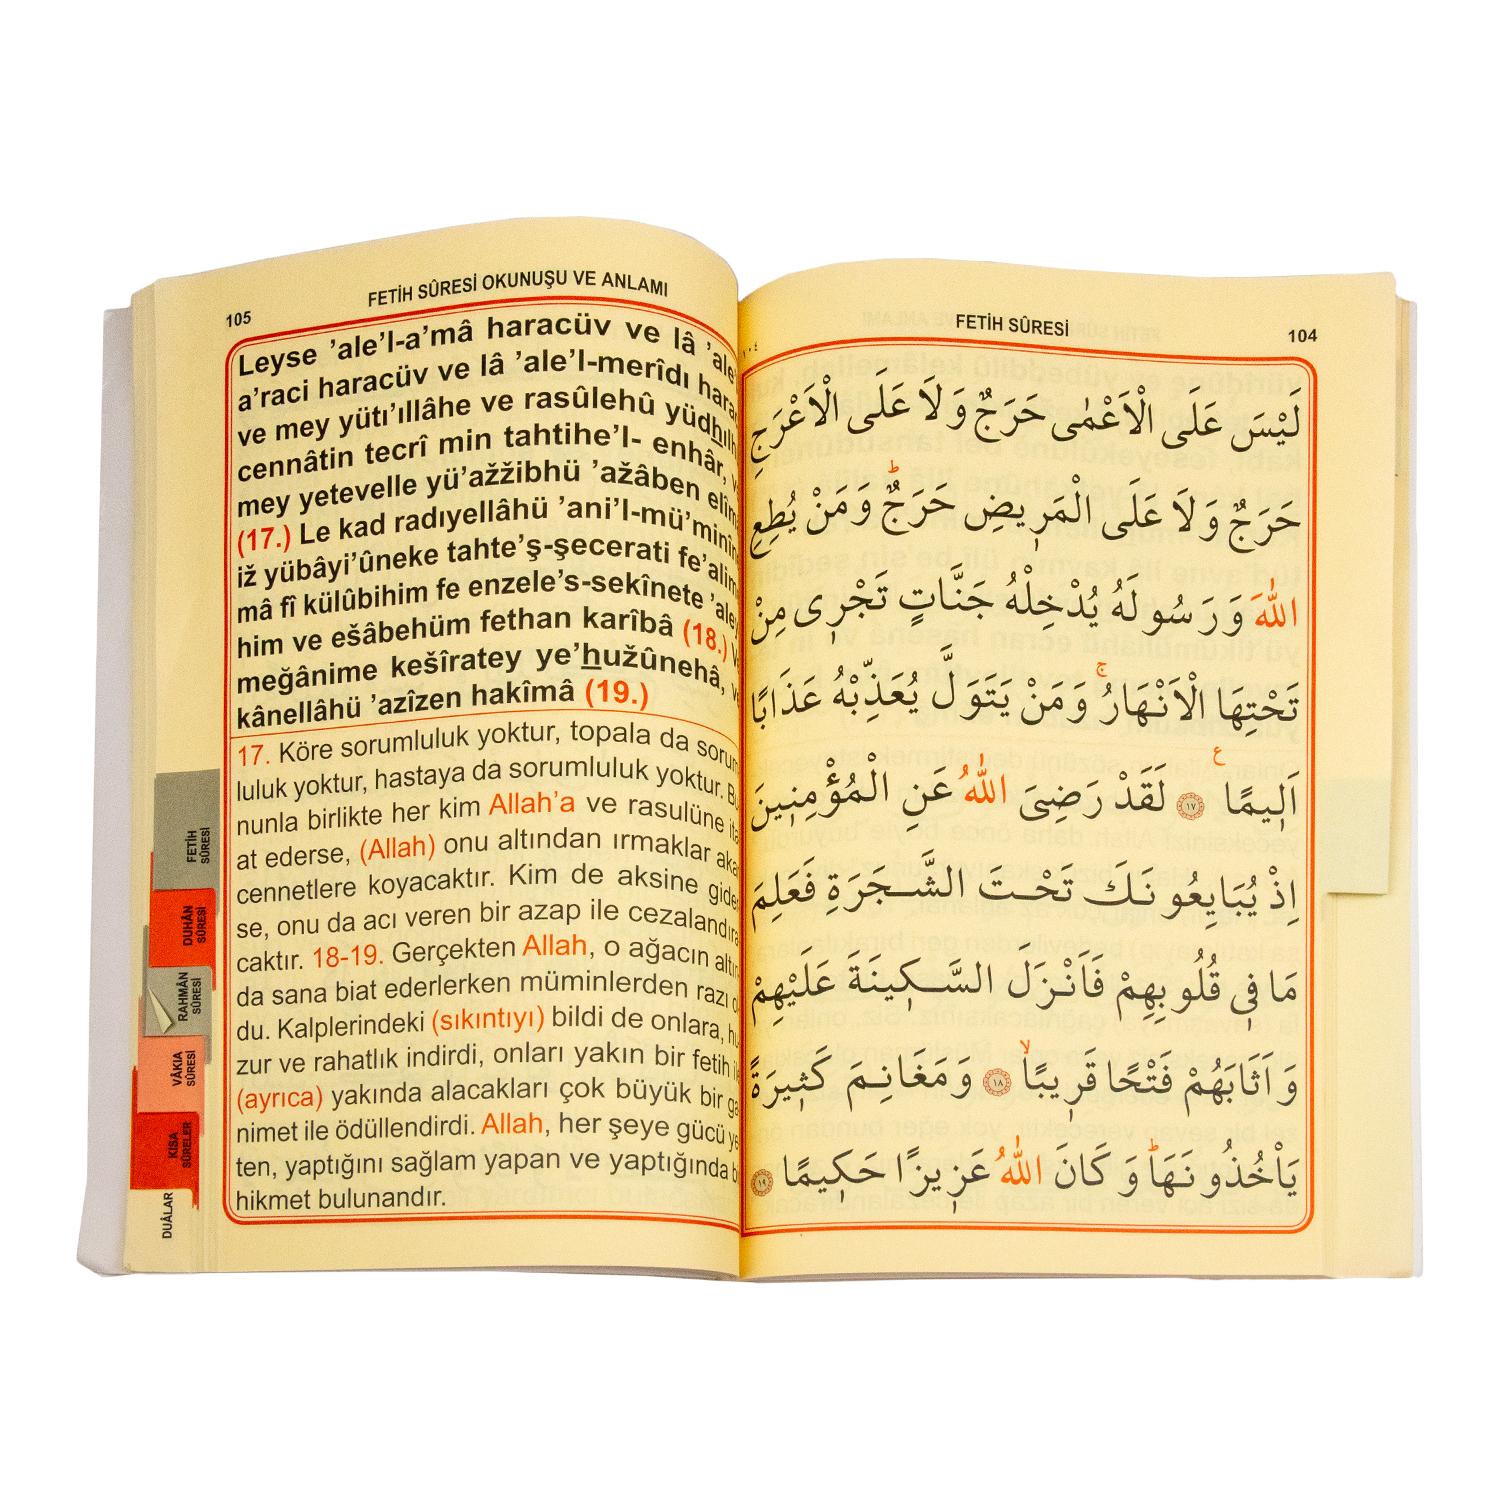 FETİH SÛRESİ OKUNUŞU VE ANLAMI
105
Leyse ’ale’l-a’mâ haracüv ve lâ ’ale’
a’raci haracüv ve lâ ’ale’l-merîdı
ve mey yütı’ıllâhe ve rasûlehû
cennâtin tecrî min tahtihe’l- enhâr,
mey yetevelle yü’ažžibhü ’ažâben
(17.) Le kad radıyellâhü ’ani’l-mü’minîne
iž yübâyi’ûneke tahte’ş-şecerati
mâ fî külûbihim fe enzele’s-sekînete
him ve ešâbehüm fethan karîbâ (18.)
meğânime kešîratey ye’hužûnehâ,
kânellâhü ’azîzen hakîmâ (19.)
17. Köre sorumluluk yoktur, topala da
luluk yoktur, hastaya da sorumluluk yoktur.
nunla birlikte her kim Allah’a ve rasulüne
at ederse, (Allah) onu altından ırmaklar
cennetlere koyacaktır. Kim de aksine
se, onu da acı veren bir azap ile
caktır. 18-19. Gerçekten Allah, o ağacın
da sana biat ederlerken müminlerden razı
du. Kalplerindeki (sıkıntıyı) bildi de onlara,
zur ve rahatlık indirdi, onları yakın bir fetih
(ayrıca) yakında alacakları çok büyük bir
nimet ile ödüllendirdi. Allah, her şeye gücü
ten, yaptığını sağlam yapan ve yaptığında
hikmet bulunandır.
FETİH
SÛRESİ
DUHÂN
SÛRESİ
RAHMÂN
SÛRESİ
VÂKIA
SÛRESİ
KISA
SÛRELER
DUÂLAR
FETİH SÛRESİ
104
١٠٤
لَيْسَ عَلَى الْاَعْمٰى حَرَجٌ وَلَا عَلَى الْاَعْرَجِ
حَرَجٌ وَلَا عَلَى الْمَرٖيضِ حَرَجٌؕ وَمَنْ يُطِعِ
اللّٰهَ وَرَسُولَهُ يُدْخِلْهُ جَنَّاتٍ تَجْرٖى مِنْ
تَحْتِهَا الْاَنْهَارُۚ وَمَنْ يَتَوَلَّ يُعَذِّبْهُ عَذَابًا
اَلٖيمًا ع ١٧ لَقَدْ رَضِىَ اللّٰهُ عَنِ الْمُؤْمِنٖينَ
اِذْ يُبَايِعُونَكَ تَحْتَ الشَّجَرَةِ فَعَلِمَ
مَا فٖى قُلُوبِهِمْ فَاَنْزَلَ السَّكٖينَةَ عَلَيْهِمْ
وَاَثَابَهُمْ فَتْحًا قَرٖيبًاۙ ١٨ وَمَغَانِمَ كَثٖيرَةً
يَاْخُذُونَهَاؕ وَكَانَ اللّٰهُ عَزٖيزًا حَكٖيمًا ١٩